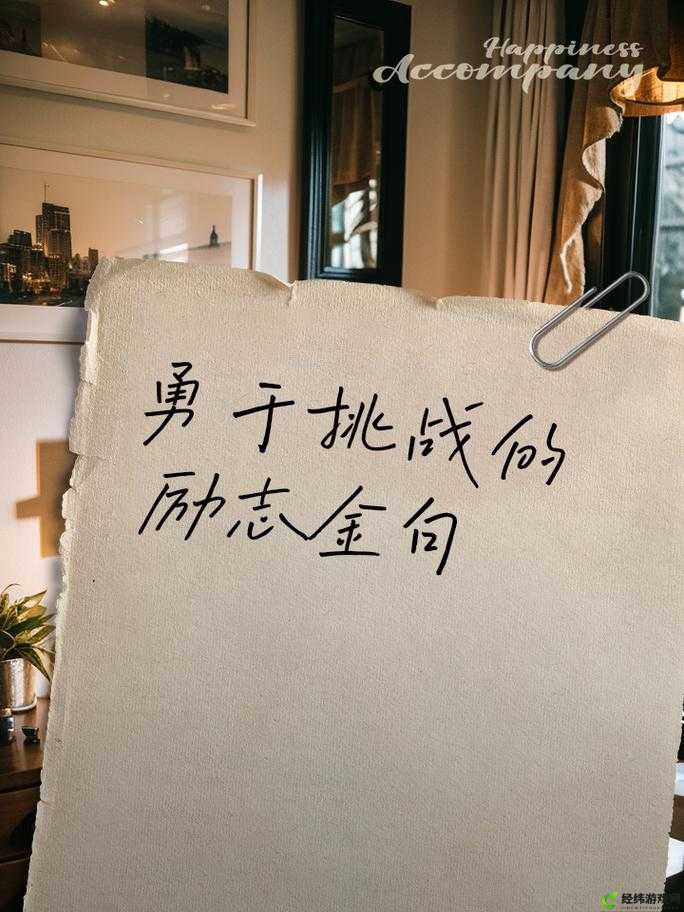 Happiness
Accompany
勇于挑战的
励志金句